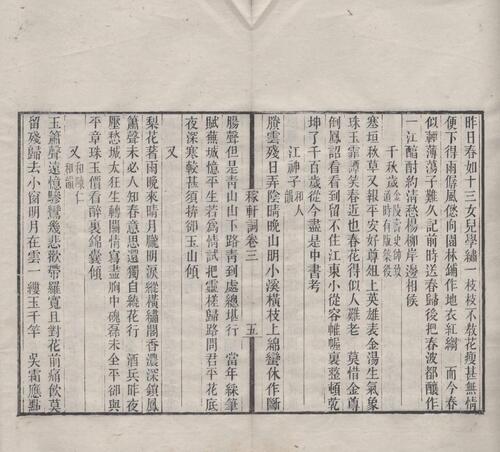 昨日春如十三女兒學繡一枝枝不敎花瘦甚無情
便下得雨僝風僽向園林鋪作地衣紅縐　而今春
似輕薄蕩子難久記前時送春歸後把春波都釀作
一江醇酎約淸愁楊柳岸邊相候
千秋歲金陵壽史帥致道時有版築役
塞垣秋草又報平安好尊俎上英雄表金湯生氣象
珠玉霏譚笑春近也梅花得似人難老　莫惜金尊
倒鳳詔看看到留不住江東小從容帷幄裏整頓乾
坤了千百歲從今盡是中書考
江神子和人韻
賸雲殘日弄陰晴晚山明小溪橫枝上緜蠻休作斷
腸聲但是靑山山下路靑到處總堪行　當年綵筆
賦蕪城憶平生若爲情試把靈槎歸路問君平花底
夜深寒較甚須拚卻玉山傾
又
梨花著雨晚來晴月朧明淚縱橫繡閣香濃深鎖鳳
簫聲未必人知春意思還獨自繞花行　酒兵昨夜
壓愁城太狂生轉關情寫盡胸中磈磊未全平卻與
平章珠玉價看醉裏錦囊傾
又和陳仁和韻
玉簫聲遠憶驂鸞幾悲歡帶羅寬且對花前痛飮莫
留殘歸去小窗明月在雲一縷玉千竿　吳霜應點
稼軒詞卷三
五